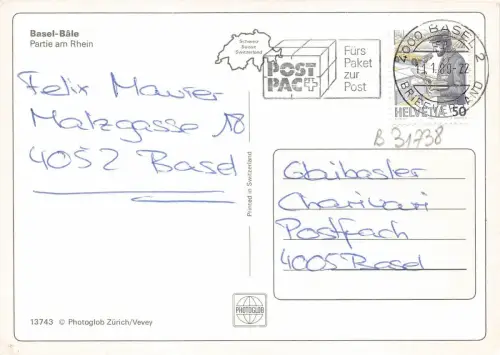 Basel-Bâle
Partie am Rhein
Felix Maurer
Malzgasse 18
4052 Basel
Schweiz
Suisse
Svizzera
POST
PAC
Fürs
Paket
zur
Post
4000 BASEL 2
BRIEFVERSAND
HELVETIA 50
B 31738
Glaibasler
Charivari
Postfach
4005 Basel
Printed in Switzerland
PHOTOGLOB
13743 © Photoglob Zürich/Vevey